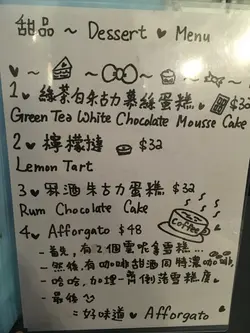 甜品 ~ Dessert ♥ Menu
1 ♥ 綠茶白朱古力慕絲蛋糕 $32
Green Tea White Chocolate Mousse Cake
2 ♥ 檸檬撻 $32
Lemon Tart
3 ♥ 冧酒朱古力蛋糕 $32
Rum Chocolate Cake
Coffee
4 ♥ Afforgato $48
- 首先,有2個雲呢拿雪糕...
- 然後,有咖啡甜酒同特濃咖啡
- 哈哈,加埋一齊倒落雪糕度
- 最後
= 好味道 ♥ Afforgato